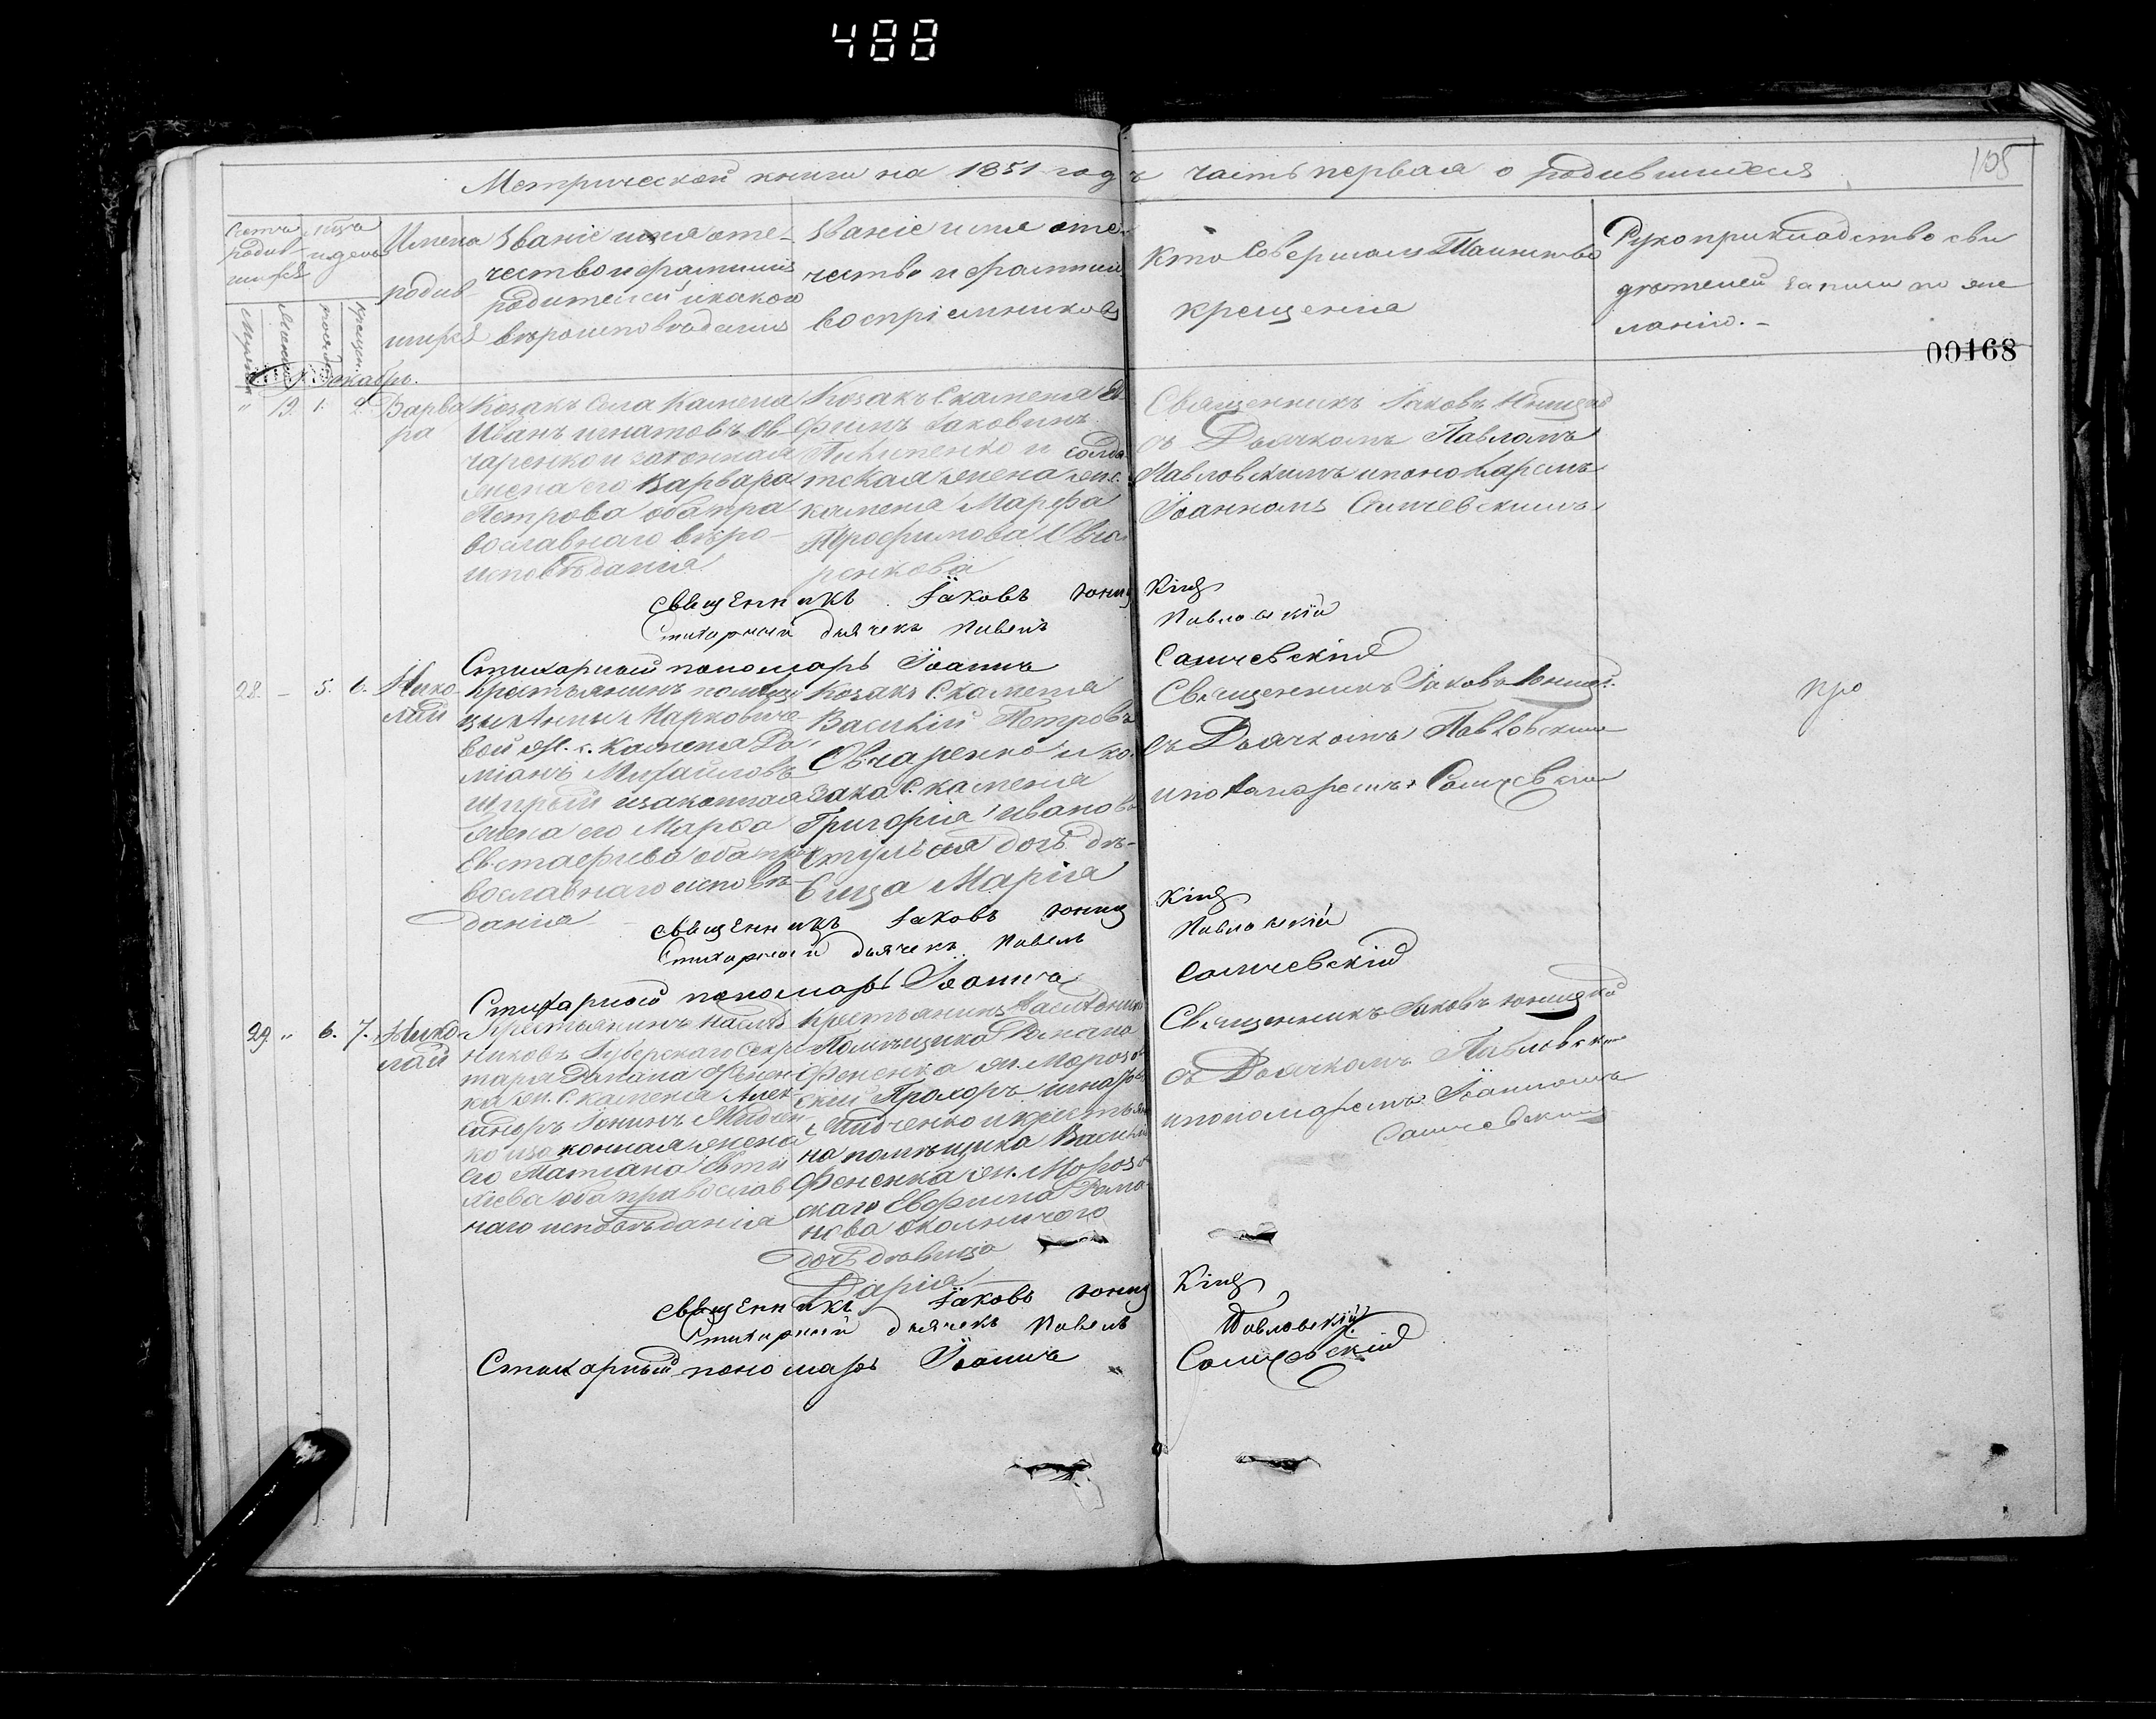 488
Метрической книги на 1851 годъ часть первая о родившихся
105
Счетъ родив шихся
Мѣсяцъ и день
Имена родив шихся
Званіе имя оте-
чество и фамилія
родителей, и какого
вѣроисповѣданія
Званіе имя оте-
чество и фамилія
воспріемниковъ
Кто совершалъ Таинство
крещенія
Рукоприкладство сви
дѣтелей записи по же
ланію. -
00168
Декабрь.
" 19. 1. 2.
Варва
ра
Козакъ села каменя
Иванъ игнатовъ Ов-
чаренко и законная
жена его Варвара
Петрова оба пра
вославнаго вѣро-
исповѣданія
Козакъ С. каменя Ев
фимъ Іаковинъ
и солда
тская жена жи. с.
каменя Марфа
Трофимова Овча
ренкова
Священникъ Іаковъ Юницкій
съ Дьячкомъ Павломъ
Павловскимъ и пономаремъ
Іоанномъ Самчевскимъ
священникъ Іаковъ Юниц кій
Стихарный дьячекъ Павелъ Павловскій
Стихарный пономарь Іоаннъ Самчевскій
28. - 5. 6.
Нико
лай
Крестьянинъ помѣщи
цы Анны Маркович-
вой жи. с. Каменя Да
міанъ Михайловъ
Щирый и законная
жена его Марфа
Евстафиева оба пра
вославнаго исповѣ-
данія
Козакъ С. каменя
Василій Петровъ
Овчаренко и ко-
зака С. каменя
Григорія Иванова
дочь дѣ-
вица Марія
Священникъ Іаковъ Юниц.
съ Дьячкомъ Павловскимъ
и пономаремъ Самчевскимъ
про
священникъ Іаковъ Юниц кій
Стихарный дьячекъ Павелъ Павловскій
Стихарный пономарь Іоаннъ Самчевскій
29. " 6. 7.
Нико
лай
Крестьянинъ наслѣд
никовъ Губерскаго Секре
таря Романа Фенен
ка жи. с. каменя Алек
сандръ Іонинъ
ко и законная жена
его Татіана
оба православ
наго исповѣданія
Крестьянинъ наслѣдник.
Помѣщика Романа
Фененка жи. Морозов
скій Прохоръ
и крестьян
на помѣщика Василія
Фененка жи. Морозов
скаго Евфима Рома
нова
дочь дѣвица
Дарія
Священникъ Іаковъ Юницкій
съ Дьячкомъ Павловским
и пономаремъ Іоанномъ
Самчевским
священникъ Іаковъ Юниц кій
Стихарный дьячекъ Павелъ Павловскій
Стихарный пономарь Іоаннъ Самчевскій